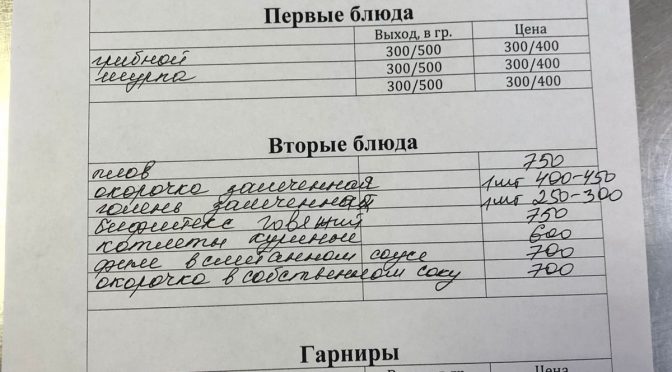 Первые блюда
Выход, в гр. Цена
грибной 300/500 300/400
шурпа 300/500 300/400
300/500 300/400
Вторые блюда
плов 750
окорочка запеченная 1 шт 400-450
голень запеченная 1 шт 250-300
бифштекс говяжий 750
котлеты куриные 600
филе в сметанном соусе 700
окорочка в собственном соку 700
Гарниры
Выход, в гр. Цена